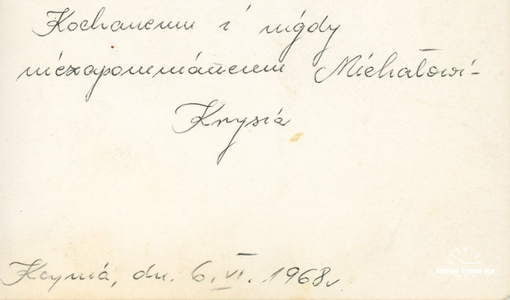 Kochanemu i nigdy
niezapomnianemu Michałowi-
Krysia
Kcynia, dn. 6.VI.1968r.